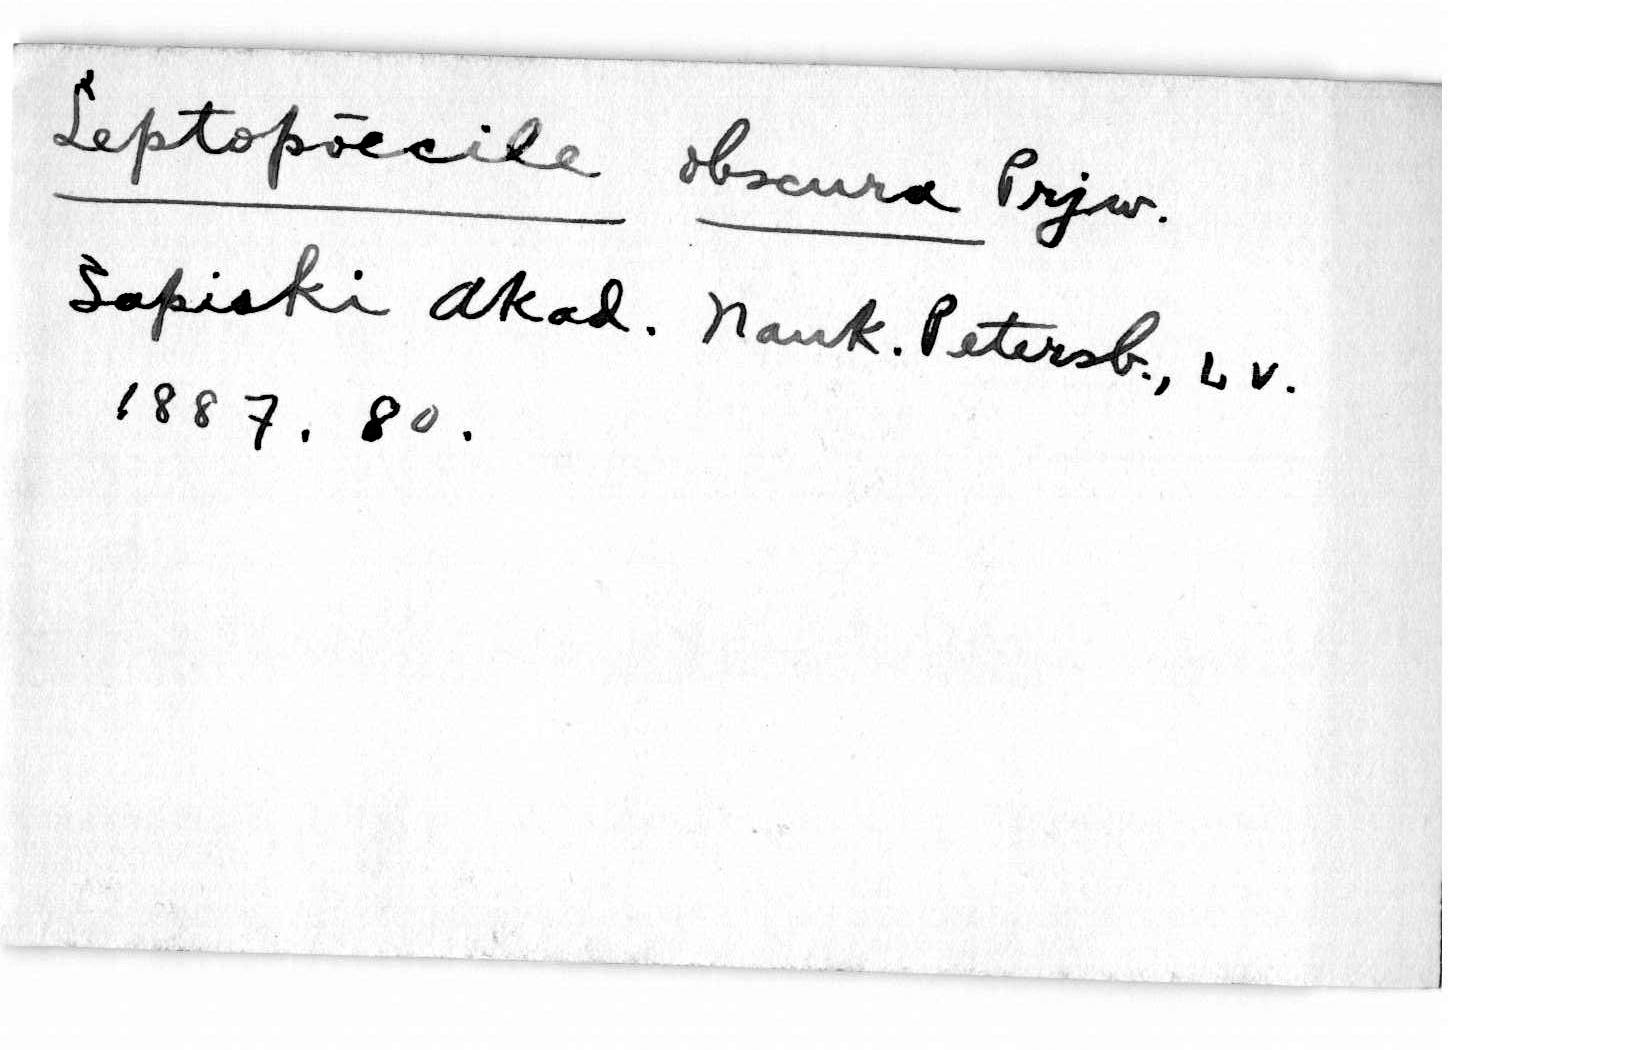 Leptopoecile obscura Prjw.
Sapiski Akad. Nauk. Petersb., LV.
1887. 80.